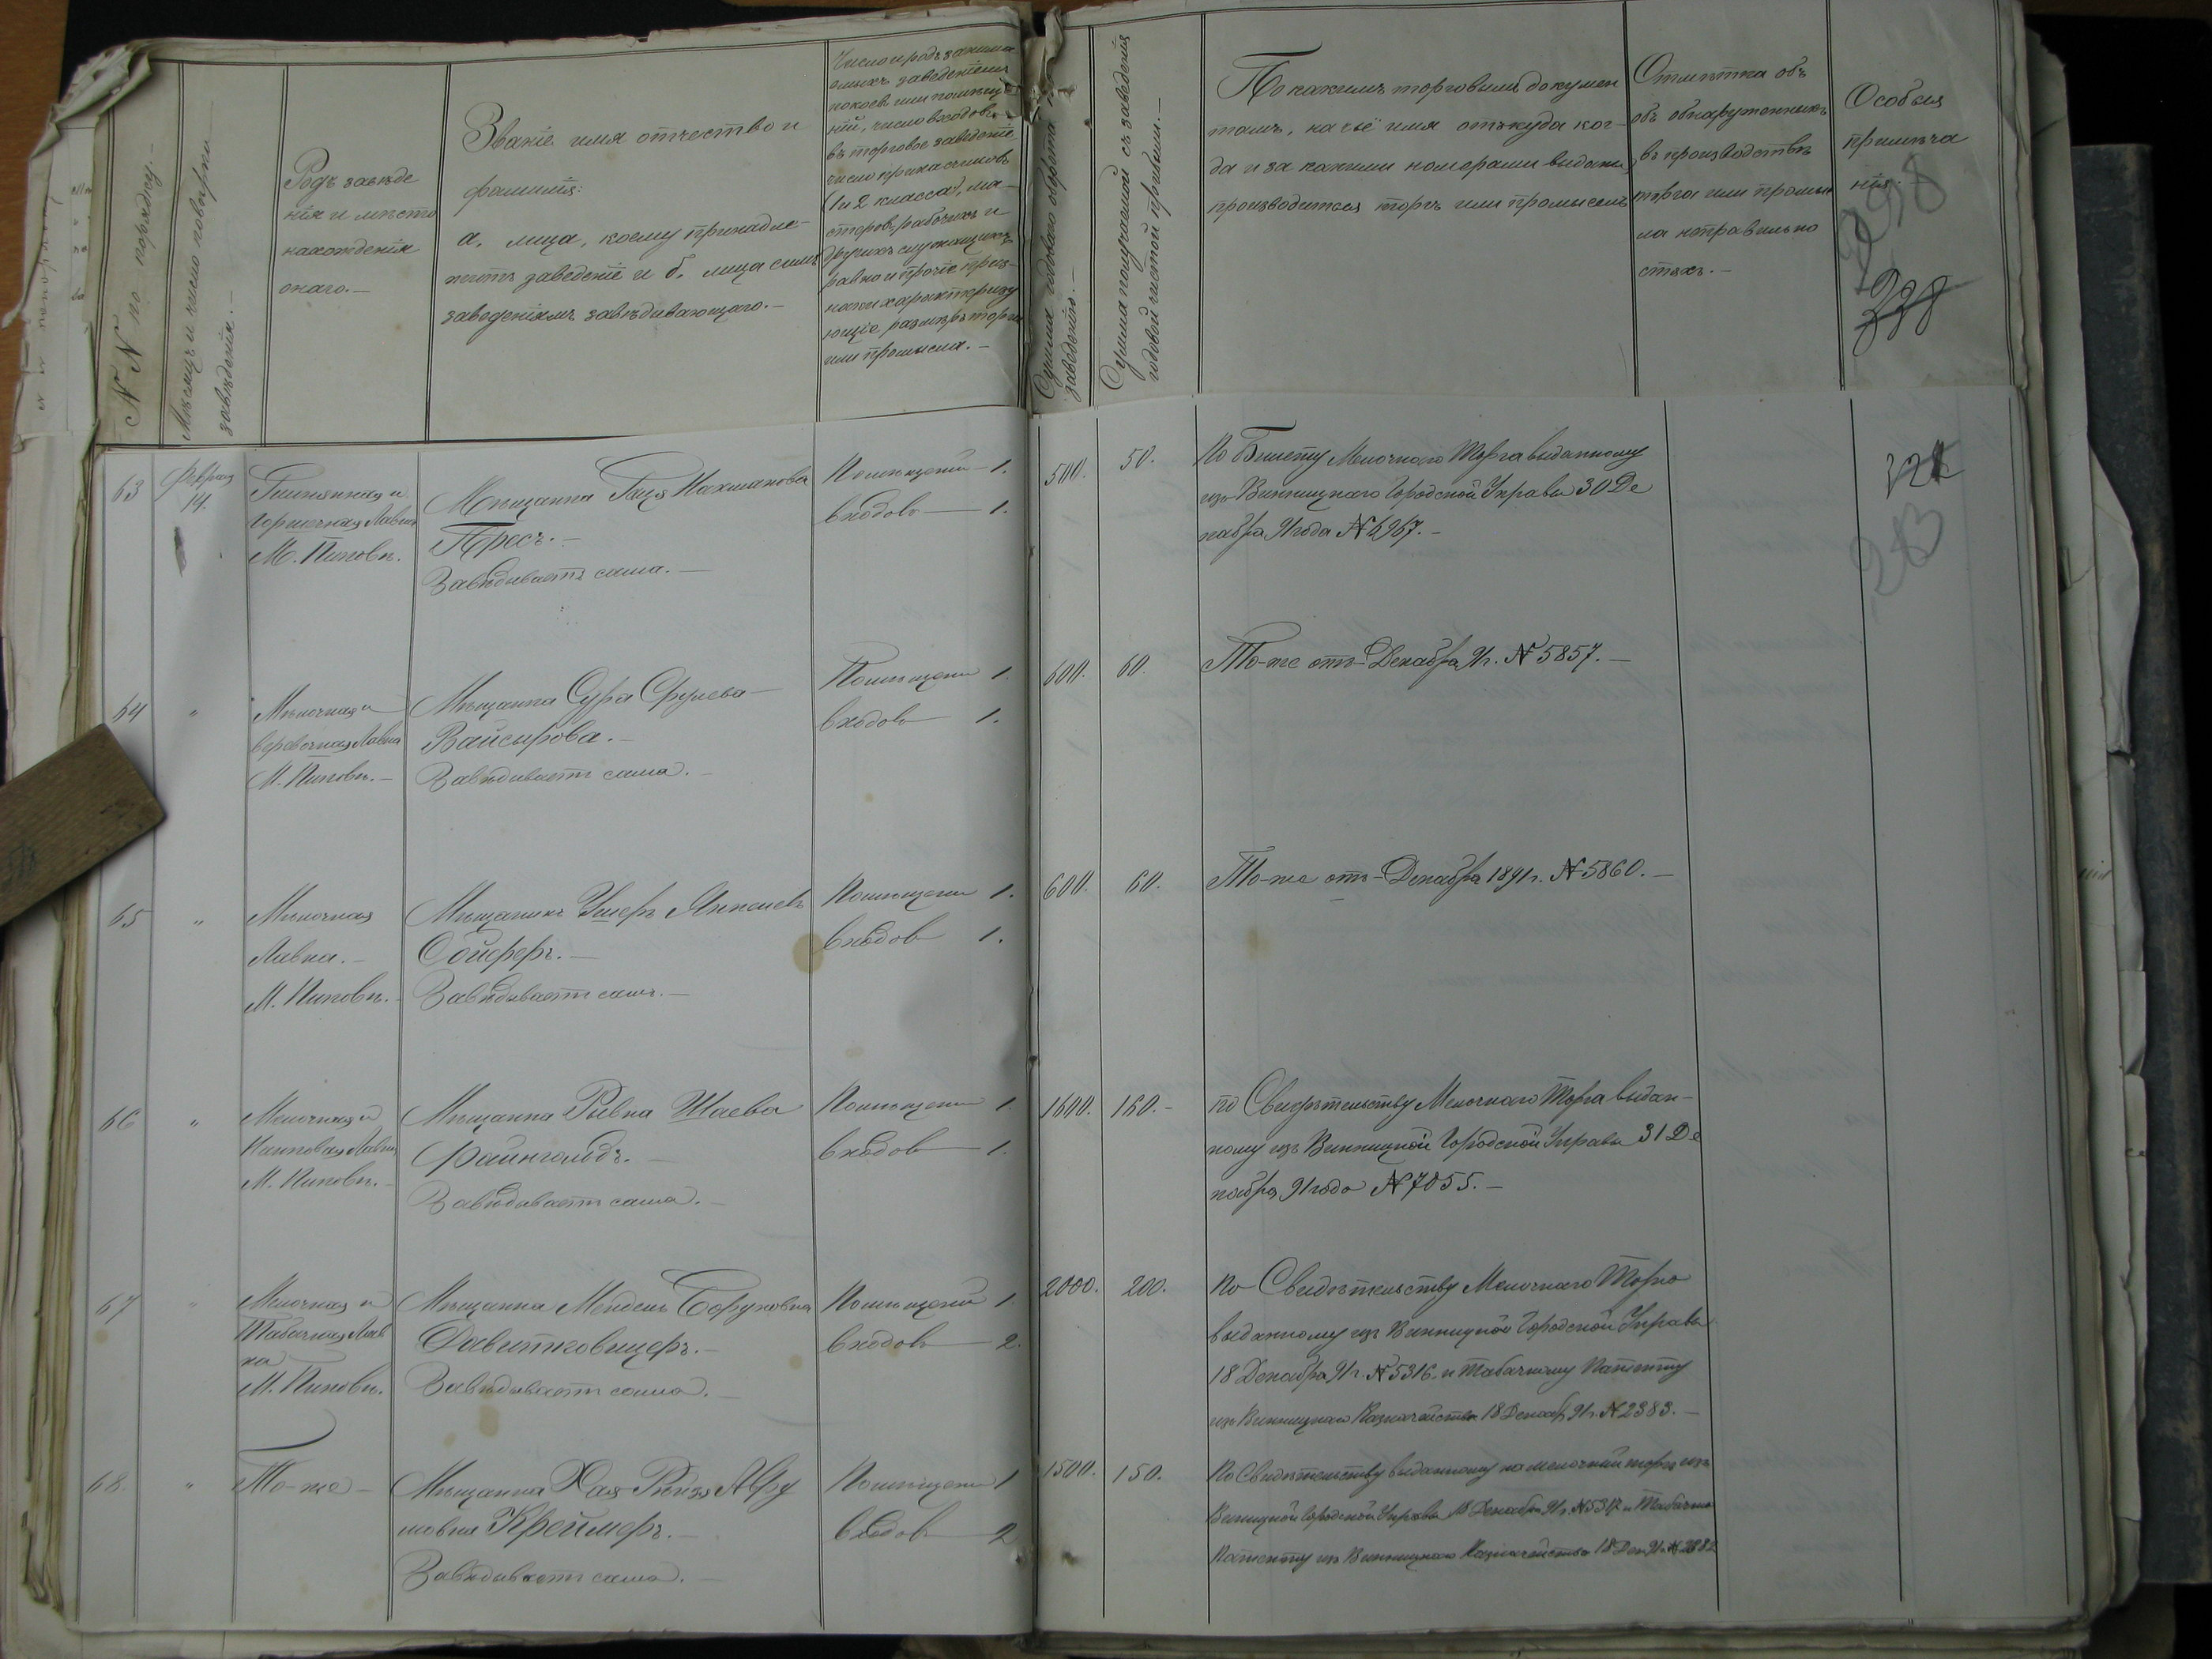 N N по порядку.-
Месяцъ и число поверки
заведенія.-
Родъ заведе
нія и место
нахожденія
онаго.-
Званіе имя отчество и
фамилія:
а, лица, коему принадле-
житъ заведеніе и б, лица симъ
заведеніемъ заведывающаго.-
покоевъ или помеще
ній, число входовъ
въ торговое заведеніе
число прикащиковъ
(1 и 2 класса), ма-
стеровъ, рабочихъ и
другихъ служащихъ
равно и прочіе приз-
наки характеризу
ющіе размеръ торга
или промысла.-
Сумма годоваго оборота
заведенію.-
Сумма получаемой съ заведенія
годовой чистой прибыли.-
По какимъ торговымъ докумен
тамъ, на чьё имя откуда ког-
да и за какими номерами выданы,
производится торгъ или промыселъ
Отметка объ
объ обнаруженныхъ
въ производстве
торга или промыс
ла неправильно
стяхъ.-
Особыя
примеча
нія.-
298
63
Февраля
14.
Горшечная Лавка
М. Пиковъ.
Мещанка Нахманова
Пресъ.-
Заведываетъ сама.-
Помещеній-1.
входовъ-1.
500.
50.
По Билету Мелочнаго Торга выданному
изъ Винницкаго Городской Управы 30 Де
кабря 91 года N 6967.-
283
64
"
Мелочная и
веревочная Лавка
М. Пиковъ.-
Мещанка Сура Срулева-
Вайсырова.-
Заведываетъ сама.-
Помещеній 1.
входовъ 1.
600.
60.
То-же отъ-Декабря 91г. N 5857.-
65
"
Мелочная
Лавка.-
М. Пиковъ.-
Мещанинъ Ушеръ Янкелевъ
Сойферъ.-
Заведываетъ самъ.-
Помещеній 1.
входовъ 1.
600.
60.
То-же отъ-Декабря 1891г. N 5860.-
66
"
Мелочная и
М. Пиковъ.-
Мещанка Рывка Шаева
Файнгольдъ.-
Заведываетъ сама.-
Помещеній 1.
входовъ 1.
1600.
160.-
по Свидетельству Мелочнаго Торга выдан-
ному изъ Винницкой Городской Управы 31 Де
кабря 91 года N 7055.-
67
"
Мелочная и
Табачная Лав
ка
М. Пиковъ.
Мещанка Мендель Боруховна
Заведываетъ сама.-
Помещеній 1.
входовъ 2.
2000.
200.
По Свидетельству Мелочнаго Торга
выданному изъ Винницкой Городской Управы
18 Декабря 91г. N 5316. и Табачному Патенту
изъ Винницкаго Казначейства 18 Декаб 91г. N 2383.-
68
"
То-же-
Мещанка Хая Рейзя Авру
мовна Креймеръ.-
Заведываетъ сама.-
Помещеній 1
входовъ 2
1500.
150.
По Свидетельству выданному на мелочный торгъ изъ
Винницкой Городской Управы 18 Декабря 91г. N 5317 и Табачно
Патенту изъ Винницкаго Казначейства 18 Дек 91г. N 2382